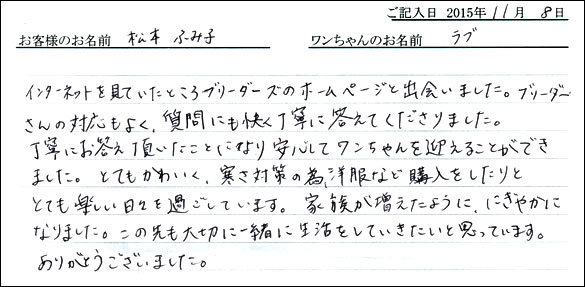 ご記入日 2015年11月8日
お客様のお名前 松本 ふみ子 ワンちゃんのお名前 ラブ
インターネットを見ていたところブリーダーズのホームページと出会いました。ブリーダー
さんの対応もよく、質問にも快く丁寧に答えてくださりました。
丁寧にお答え頂いたことになり安心してワンちゃんを迎えることができ
ました。とてもかわいく、寒さ対策の為、洋服など購入をしたりと
とても楽しい日々を過ごしています。家族が増えたように、にぎやかに
なりました。この先も大切に一緒に生活をしていきたいと思っています。
ありがとうございました。